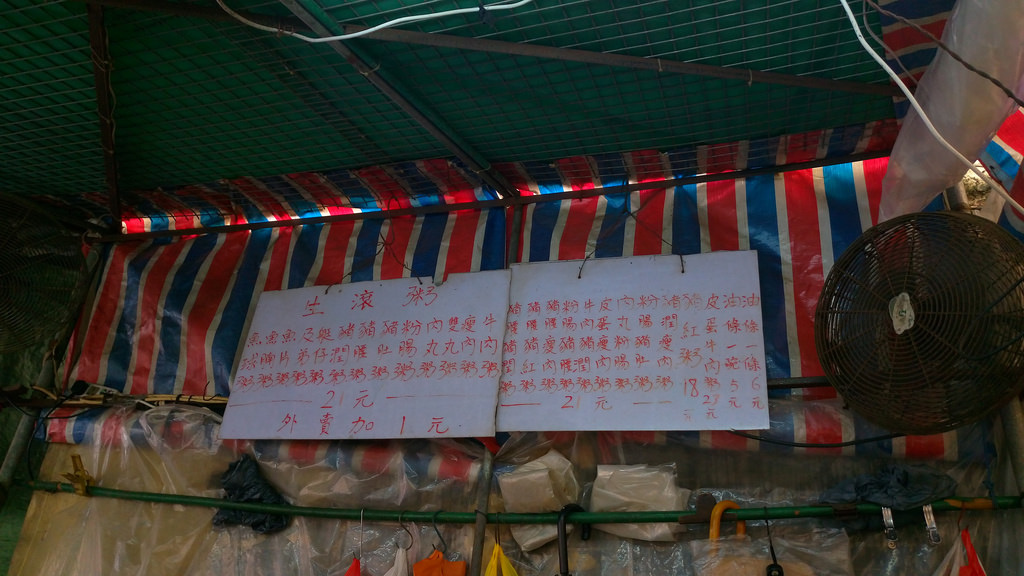 生滾粥
魚球粥
魚腩粥
魚片粥
及弟粥
艇仔粥
豬潤粥
豬腰粥
豬肚粥
粉腸粥
肉丸粥
雙丸粥
瘦肉粥
牛肉粥
21元
外賣加1元
豬腰豬潤粥
豬腰豬紅粥
豬腰瘦肉粥
粉腸豬腰粥
牛肉豬潤粥
皮蛋瘦肉粥
肉丸粉腸粥
粉腸豬肚粥
豬潤瘦肉粥
21元
豬紅粥18元
皮蛋牛肉粥23元
油條一碗5元
油條一條6元